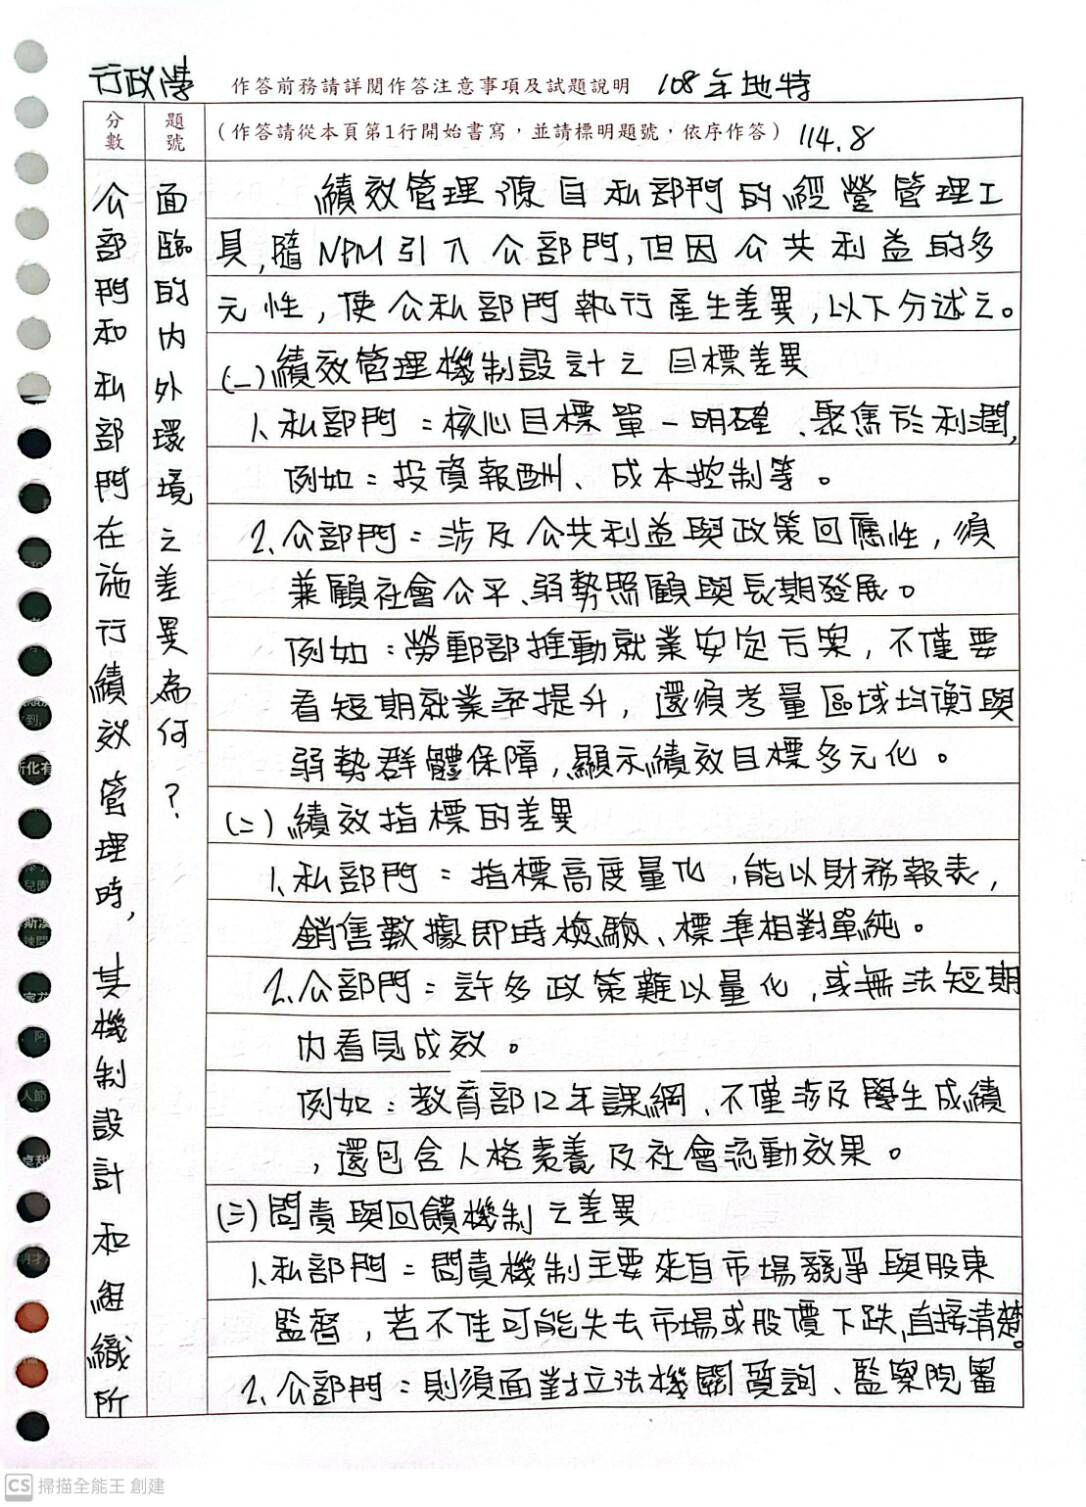 行政學 作答前務請詳閱作答注意事項及試題說明 108年地特
分數 題號 （作答請從本頁第1行開始書寫，並請標明題號，依序作答） 114.8
公部門和私部門在施行績效管理時，其機制設計和組織所
面臨的內外環境之差異為何？
績效管理源自私部門的經營管理工
具，隨NPM引入公部門，但因公共利益的多
元性，使公私部門執行產生差異，以下分述之。
(一)績效管理機制設計之目標差異
1、私部門：核心目標單一明確、聚焦於利潤，
例如：投資報酬、成本控制等。
2、公部門：涉及公共利益與政策回應性，須
兼顧社會公平、弱勢照顧與長期發展。
例如：勞動部推動就業安定方案，不僅要
看短期就業率提升，還須考量區域均衡與
弱勢群體保障，顯示績效目標多元化。
(二)績效指標的差異
1、私部門：指標高度量化，能以財務報表，
銷售數據即時檢驗、標準相對單純。
2、公部門：許多政策難以量化，或無法短期
內看見成效。
例如：教育部12年課綱、不僅涉及學生成績
，還包含人格素養及社會流動效果。
(三)問責與回饋機制之差異
1、私部門：問責機制主要來自市場競爭與股東
監督，若不佳可能失去市場或股價下跌，直接清楚。
2、公部門：則須面對立法機關質詢、監察院審
到
行化有
兒
斯
阿
人節
CS 掃描全能王 創建